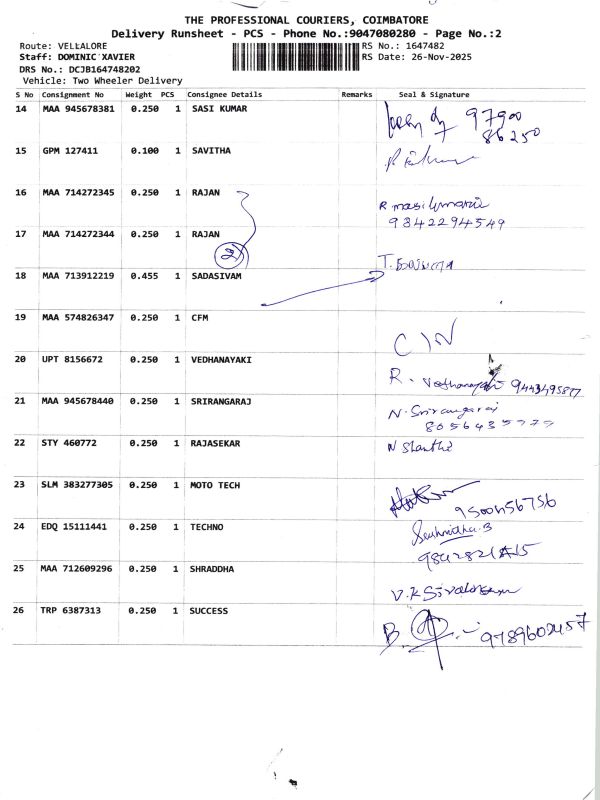 THE PROFESSIONAL COURIERS, COIMBATORE
Delivery Runsheet - PCS - Phone No.:9047080280 - Page No.:2
Route: VELLALORE RS No.: 1647482
Staff: DOMINIC XAVIER RS Date: 26-Nov-2025
DRS No.: DCJB164748202
Vehicle: Two Wheeler Delivery
S No Consignment No Weight PCS Consignee Details Remarks Seal & Signature
14 MAA 945678381 0.250 1 SASI KUMAR 97900
86250
15 GPM 127411 0.100 1 SAVITHA
16 MAA 714272345 0.250 1 RAJAN R. masilamani
9842294549
17 MAA 714272344 0.250 1 RAJAN
2
18 MAA 713912219 0.455 1 SADASIVAM T.
19 MAA 574826347 0.250 1 CFM
20 UPT 8156672 0.250 1 VEDHANAYAKI R. Vedhanayaki 9443495877
21 MAA 945678440 0.250 1 SRIRANGARAJ N. Srirangaraj
22 STY 460772 0.250 1 RAJASEKAR N Shanthi
23 SLM 383277305 0.250 1 MOTO TECH
24 EDQ 15111441 0.250 1 TECHNO
25 MAA 712609296 0.250 1 SHRADDHA
26 TRP 6387313 0.250 1 SUCCESS B.